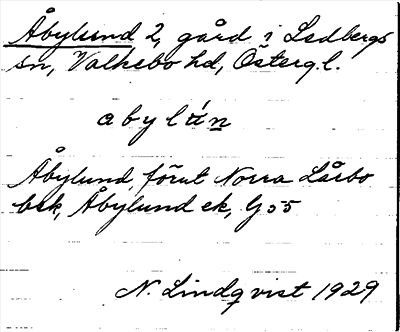 Åbylund 2, gård i Ledbergs
sn, Valkebo hd, Östergl.
abylún
Åbylund, förut Norra Lårbo
bek, Åbylund ek, G 55
N. Lindqvist 1929